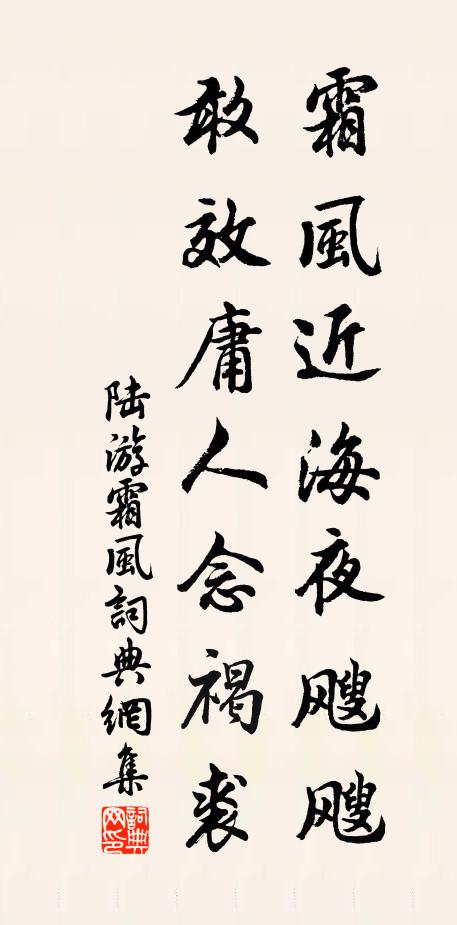 霜風近海夜飕飕
敢效庸人念褐裘
陆游霜風詞典網集
詞典网印